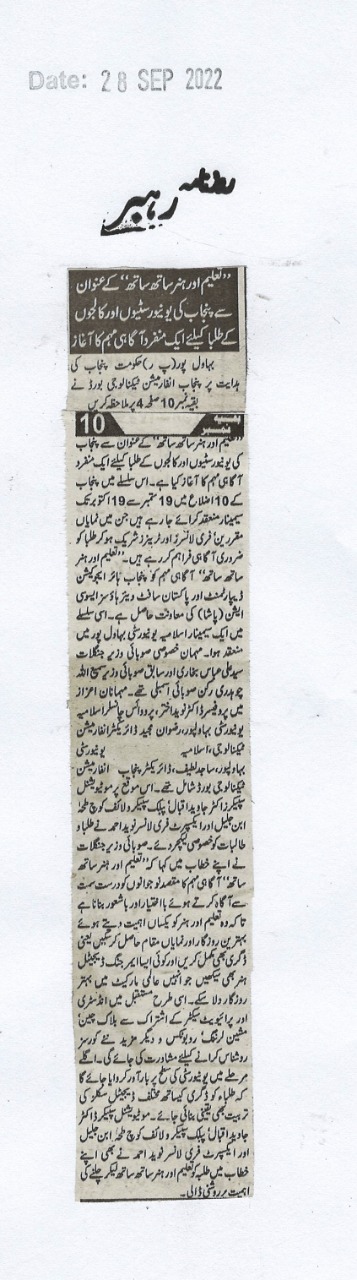 Date: 28 SEP 2022
روزنامہ رہبر
”تعلیم اور ہنر ساتھ ساتھ“ کے عنوان
سے پنجاب کی یونیورسٹیوں اور کالجوں
کے طلبا کیلئے ایک منفرد آگاہی مہم کا آغاز
بہاول پور (پ ر) حکومت پنجاب کی
ہدایت پر پنجاب انفارمیشن ٹیکنالوجی بورڈ نے
بقیہ نمبر 10 صفحہ 4 پر ملاحظہ کریں
بقیہ نمبر 10
”تعلیم اور ہنر ساتھ ساتھ“ کے عنوان سے پنجاب
کی یونیورسٹیوں اور کالجوں کے طلبا کیلئے ایک منفرد
آگاہی مہم کا آغاز کیا ہے۔ اس سلسلے میں پنجاب
کے 10 اضلاع میں 19 ستمبر سے 19 اکتوبر تک
سیمینار منعقد کرائے جا رہے ہیں جن میں نمایاں
مقررین فری لانسرز اور ٹرینرز شریک ہو کر طلبا کو
ضروری آگاہی فراہم کر رہے ہیں۔ ”تعلیم اور ہنر
ساتھ ساتھ“ آگاہی مہم کو پنجاب ہائر ایجوکیشن
ڈیپارٹمنٹ اور پاکستان سافٹ ویئر ہاؤسز ایسوسی
ایشن (پاشا) کی معاونت حاصل ہے۔ اسی سلسلے
میں ایک سیمینار اسلامیہ یونیورسٹی بہاول پور میں
منعقد ہوا۔ مہمان خصوصی صوبائی وزیر جنگلات
سید علی عباس بخاری اور سابق صوبائی وزیر سمیع اللہ
چوہدری رکن صوبائی اسمبلی تھے۔ مہمانان اعزاز
میں پروفیسر ڈاکٹر نوید اختر، پرو وائس چانسلر اسلامیہ
یونیورسٹی بہاولپور، رضوان مجید ڈائریکٹر انفارمیشن
ٹیکنالوجی، اسلامیہ یونیورسٹی
بہاولپور، ساجد لطیف، ڈائریکٹر پنجاب انفارمیشن
ٹیکنالوجی بورڈ شامل تھے۔ اس موقع پر موٹیویشنل
سپیکرز ڈاکٹر جاوید اقبال، پبلک سپیکر و لائف کوچ طٰہٰ
ابن جلیل اور ایکسپرٹ فری لانسر نوید احمد نے طلبا و
طالبات کو خصوصی لیکچر دئے۔ صوبائی وزیر جنگلات
نے اپنے خطاب میں کہا کہ ”تعلیم اور ہنر ساتھ
ساتھ“ آگاہی مہم کا مقصد نوجوانوں کو درست سمت
سے آگاہ کرتے ہوئے با اختیار اور باشعور بنانا ہے
تاکہ وہ تعلیم اور ہنر کو یکساں اہمیت دیتے ہوئے
بہترین روزگار اور نمایاں مقام حاصل کر سکیں یعنی
ڈگری بھی مکمل کریں اور کوئی ایسا ایمرجنگ ڈیجیٹل
ہنر بھی سیکھیں جو انہیں عالمی مارکیٹ میں بہتر
روزگار دلا سکے۔ اسی طرح مستقبل میں انڈسٹری
اور پرائیویٹ سیکٹر کے اشتراک سے بلاک چین،
مشین لرننگ، روبوٹکس و دیگر مزید نئے کورسز
روشناس کرانے کیلئے مشاورت کی جائے گی۔ اگلے
مرحلے میں یونیورسٹی کی سطح پر باور کروایا جائے گا
کہ طلباء کو ڈگری کیساتھ مختلف ڈیجیٹل سکلز کی
تربیت بھی یقینی بنائی جائے۔ موٹیویشنل سپیکر ڈاکٹر
جاوید اقبال، پبلک سپیکر و لائف کوچ طٰہٰ ابن جلیل
اور ایکسپرٹ فری لانسر نوید احمد نے بھی اپنے
خطاب میں طلبہ کو تعلیم اور ہنر ساتھ ساتھ لیکر چلنے کی
اہمیت پر روشنی ڈالی۔